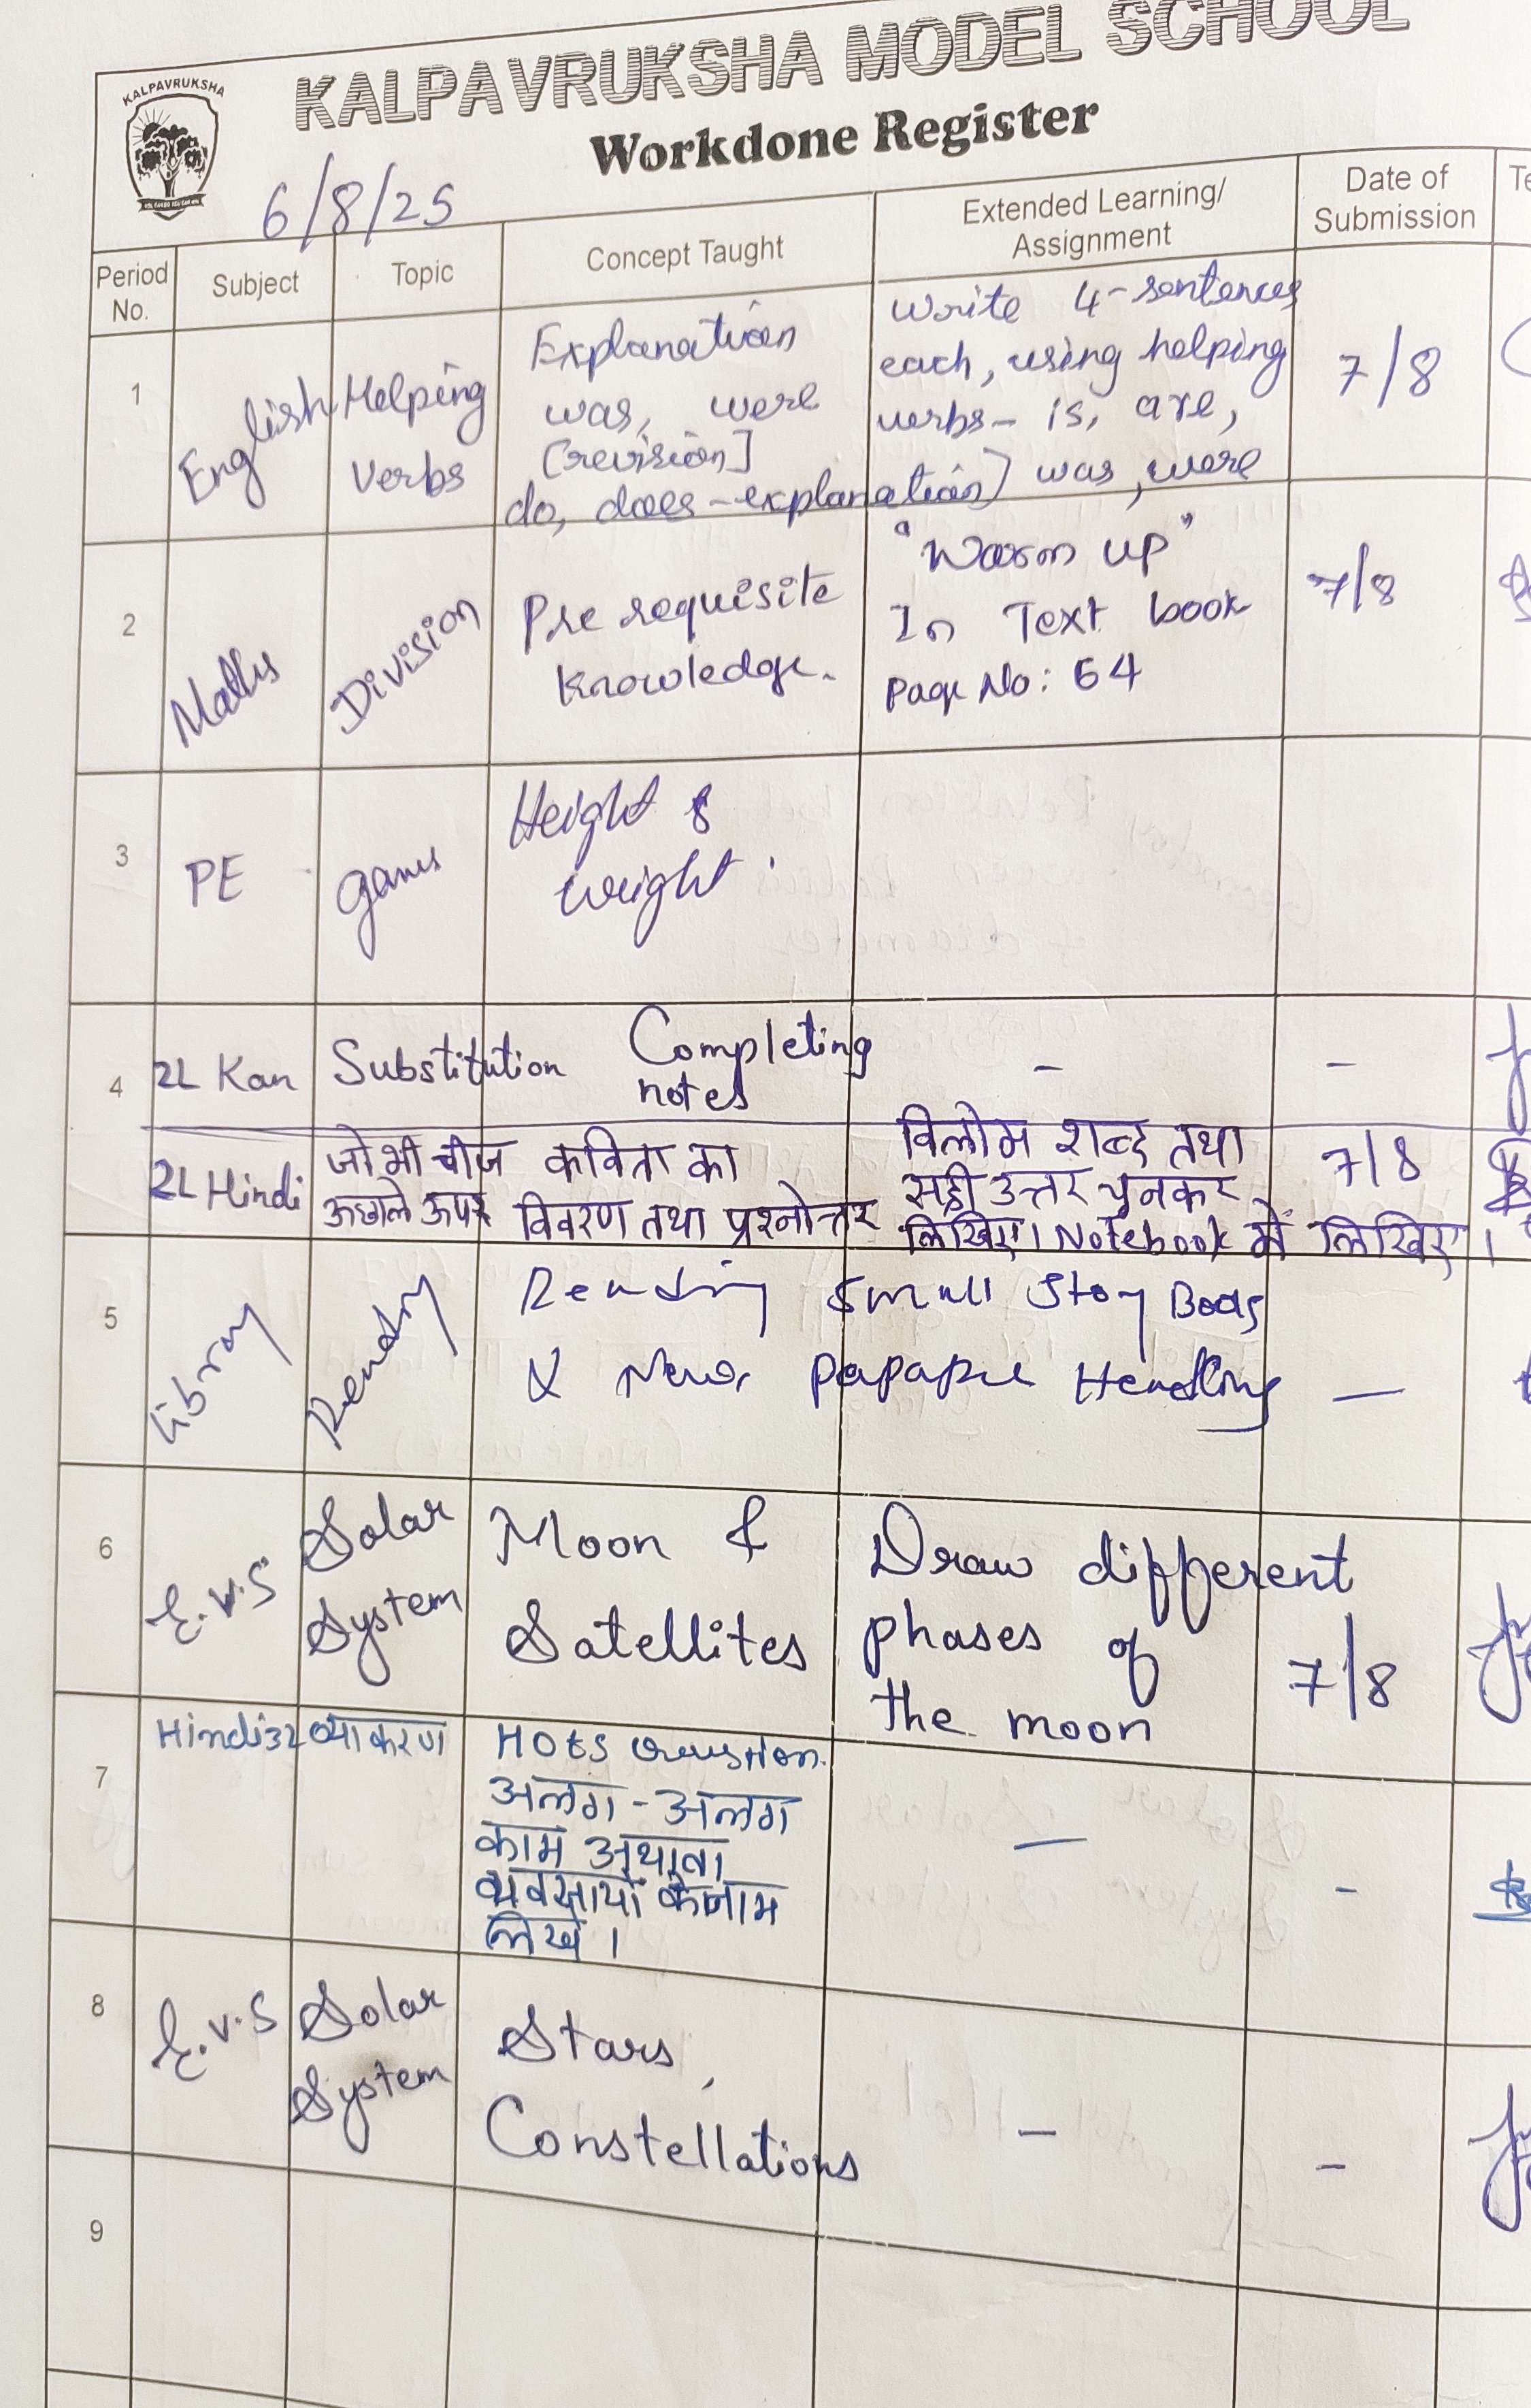 KALPAVRUKSHA MODEL SCHOOL
KALPAVRUKSHA
Workdone Register
6/8/25
Period No.
Subject
Topic
Concept Taught
Extended Learning/
Assignment
Date of
Submission
1
English
Helping
Verbs
Explanation
was, were
[revision]
do, does - explanation]
Write 4-sentences
each, using helping
verbs - is, are,
was, were
7/8
2
Maths
Division
Pre requisite
knowledge.
"Warm up"
In Text book
Page No: 64
7/8
3
PE
games
Height &
weight
4
2L Kan
Substitution
Completing
notes
-
-
2L Hindi
जो भी चीज
ऊछाले ऊपर
कविता का
विवरण तथा प्रश्नोत्तर
विलोम शब्द तथा
सही उत्तर चुनकर
लिखिए। Notebook में लिखिए।
7/8
5
Library
Reading
Reading small Story Books
& News papaper Heading
—
6
E.V.S
Solar
System
Moon &
Satellites
Draw different
phases of
the moon
7/8
7
Hindi 3L
व्याकरण
HOTS Question.
अलग - अलग
काम अथवा
व्यवसायों के नाम
लिखे।
—
-
8
E.V.S
Solar
System
Stars,
Constellations
-
-
9